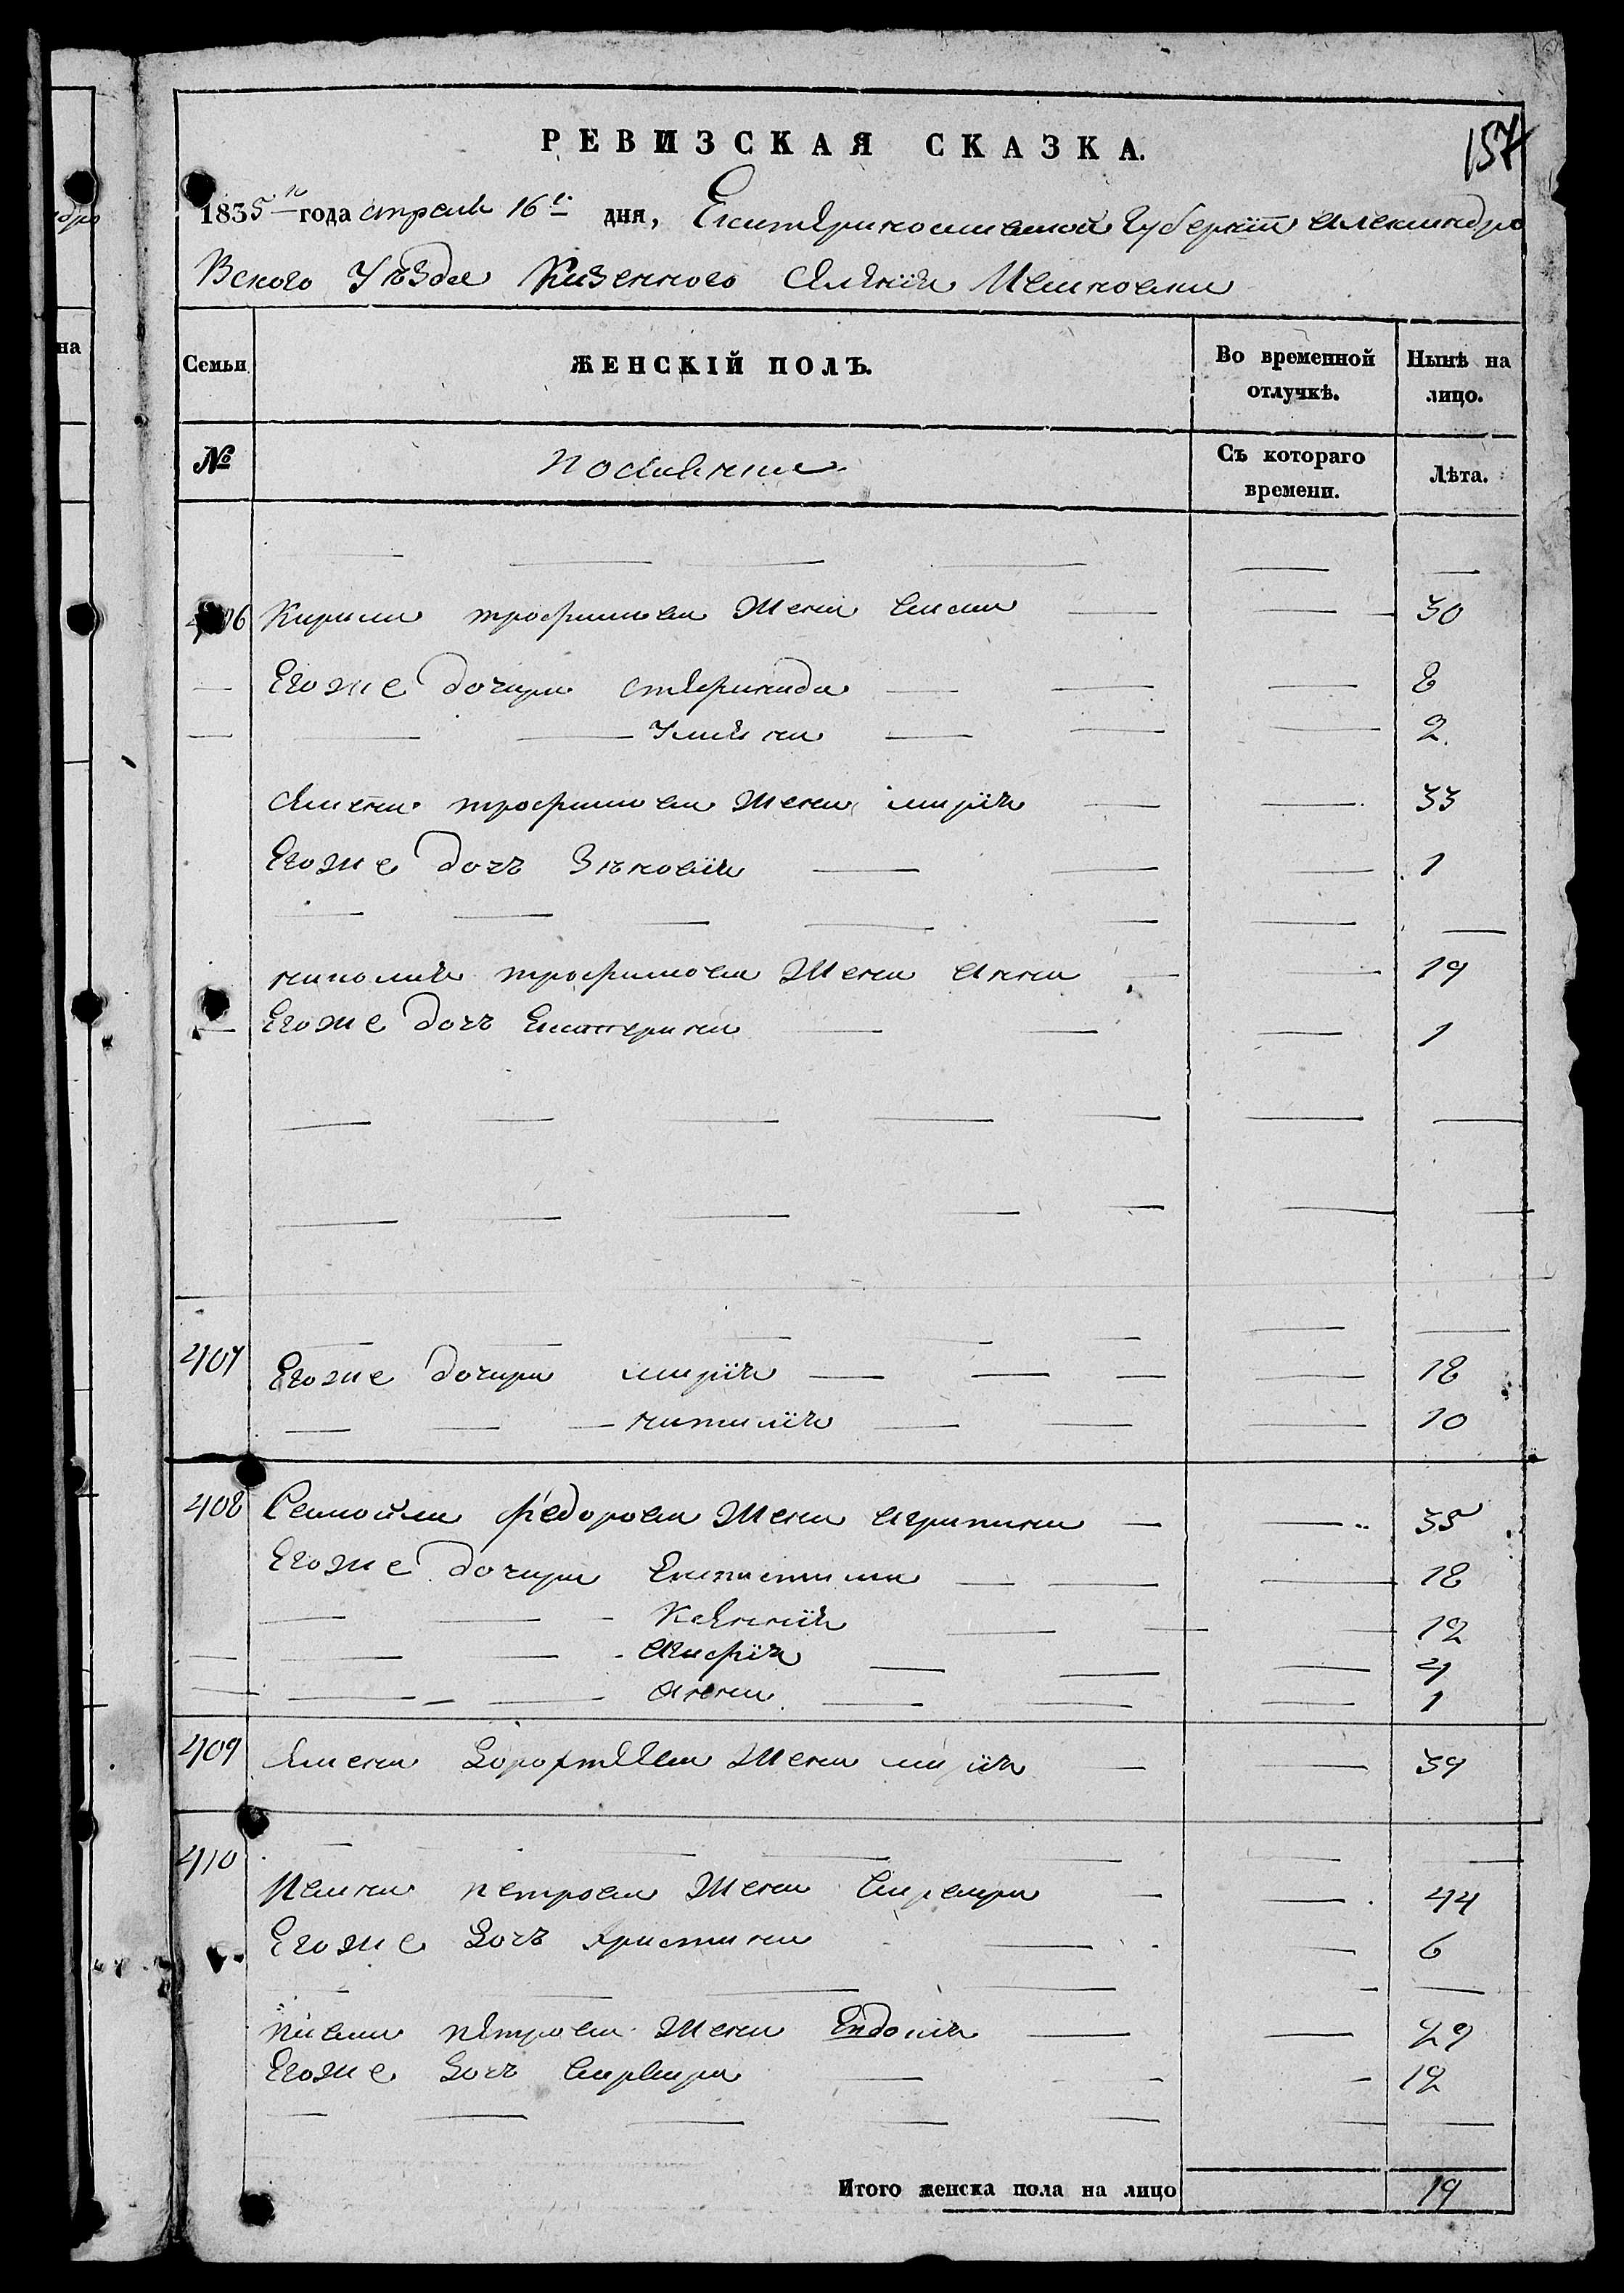 157
РЕВИЗСКАЯ СКАЗКА.
1835го года апреля 16го дня, Екатеринославской Губернїи Александро
Вского Уѣзда Казенного Селенїя Пешковки
Семьи
ЖЕНСКІЙ ПОЛЪ.
Во временной отлучкѣ.
Нынѣ на лицо.
№
Съ котораго времени.
Лѣта.
406 Кирила трофимова жена 30
Егоже дочери стефанида 8
Ульяна 2
Семена трофимова жена марїя 33
Егоже дочъ Зѣновїя 1
трофимова жена анна 19
Егоже дочъ Екатерина 1
407 Егоже дочери марїя 18
наталїя 10
408 Самойла федорова жена агрипина 35
Егоже дочери 18
Ксенїя 12
Агафїя 4
Анна 1
409 Семена жена марїя 39
410
петрова жена варвара 44
Егоже дочъ христина 6
павла петрова жена Евдокїя 29
Егоже дочъ варвара 12
Итого женска пола на лицо 19